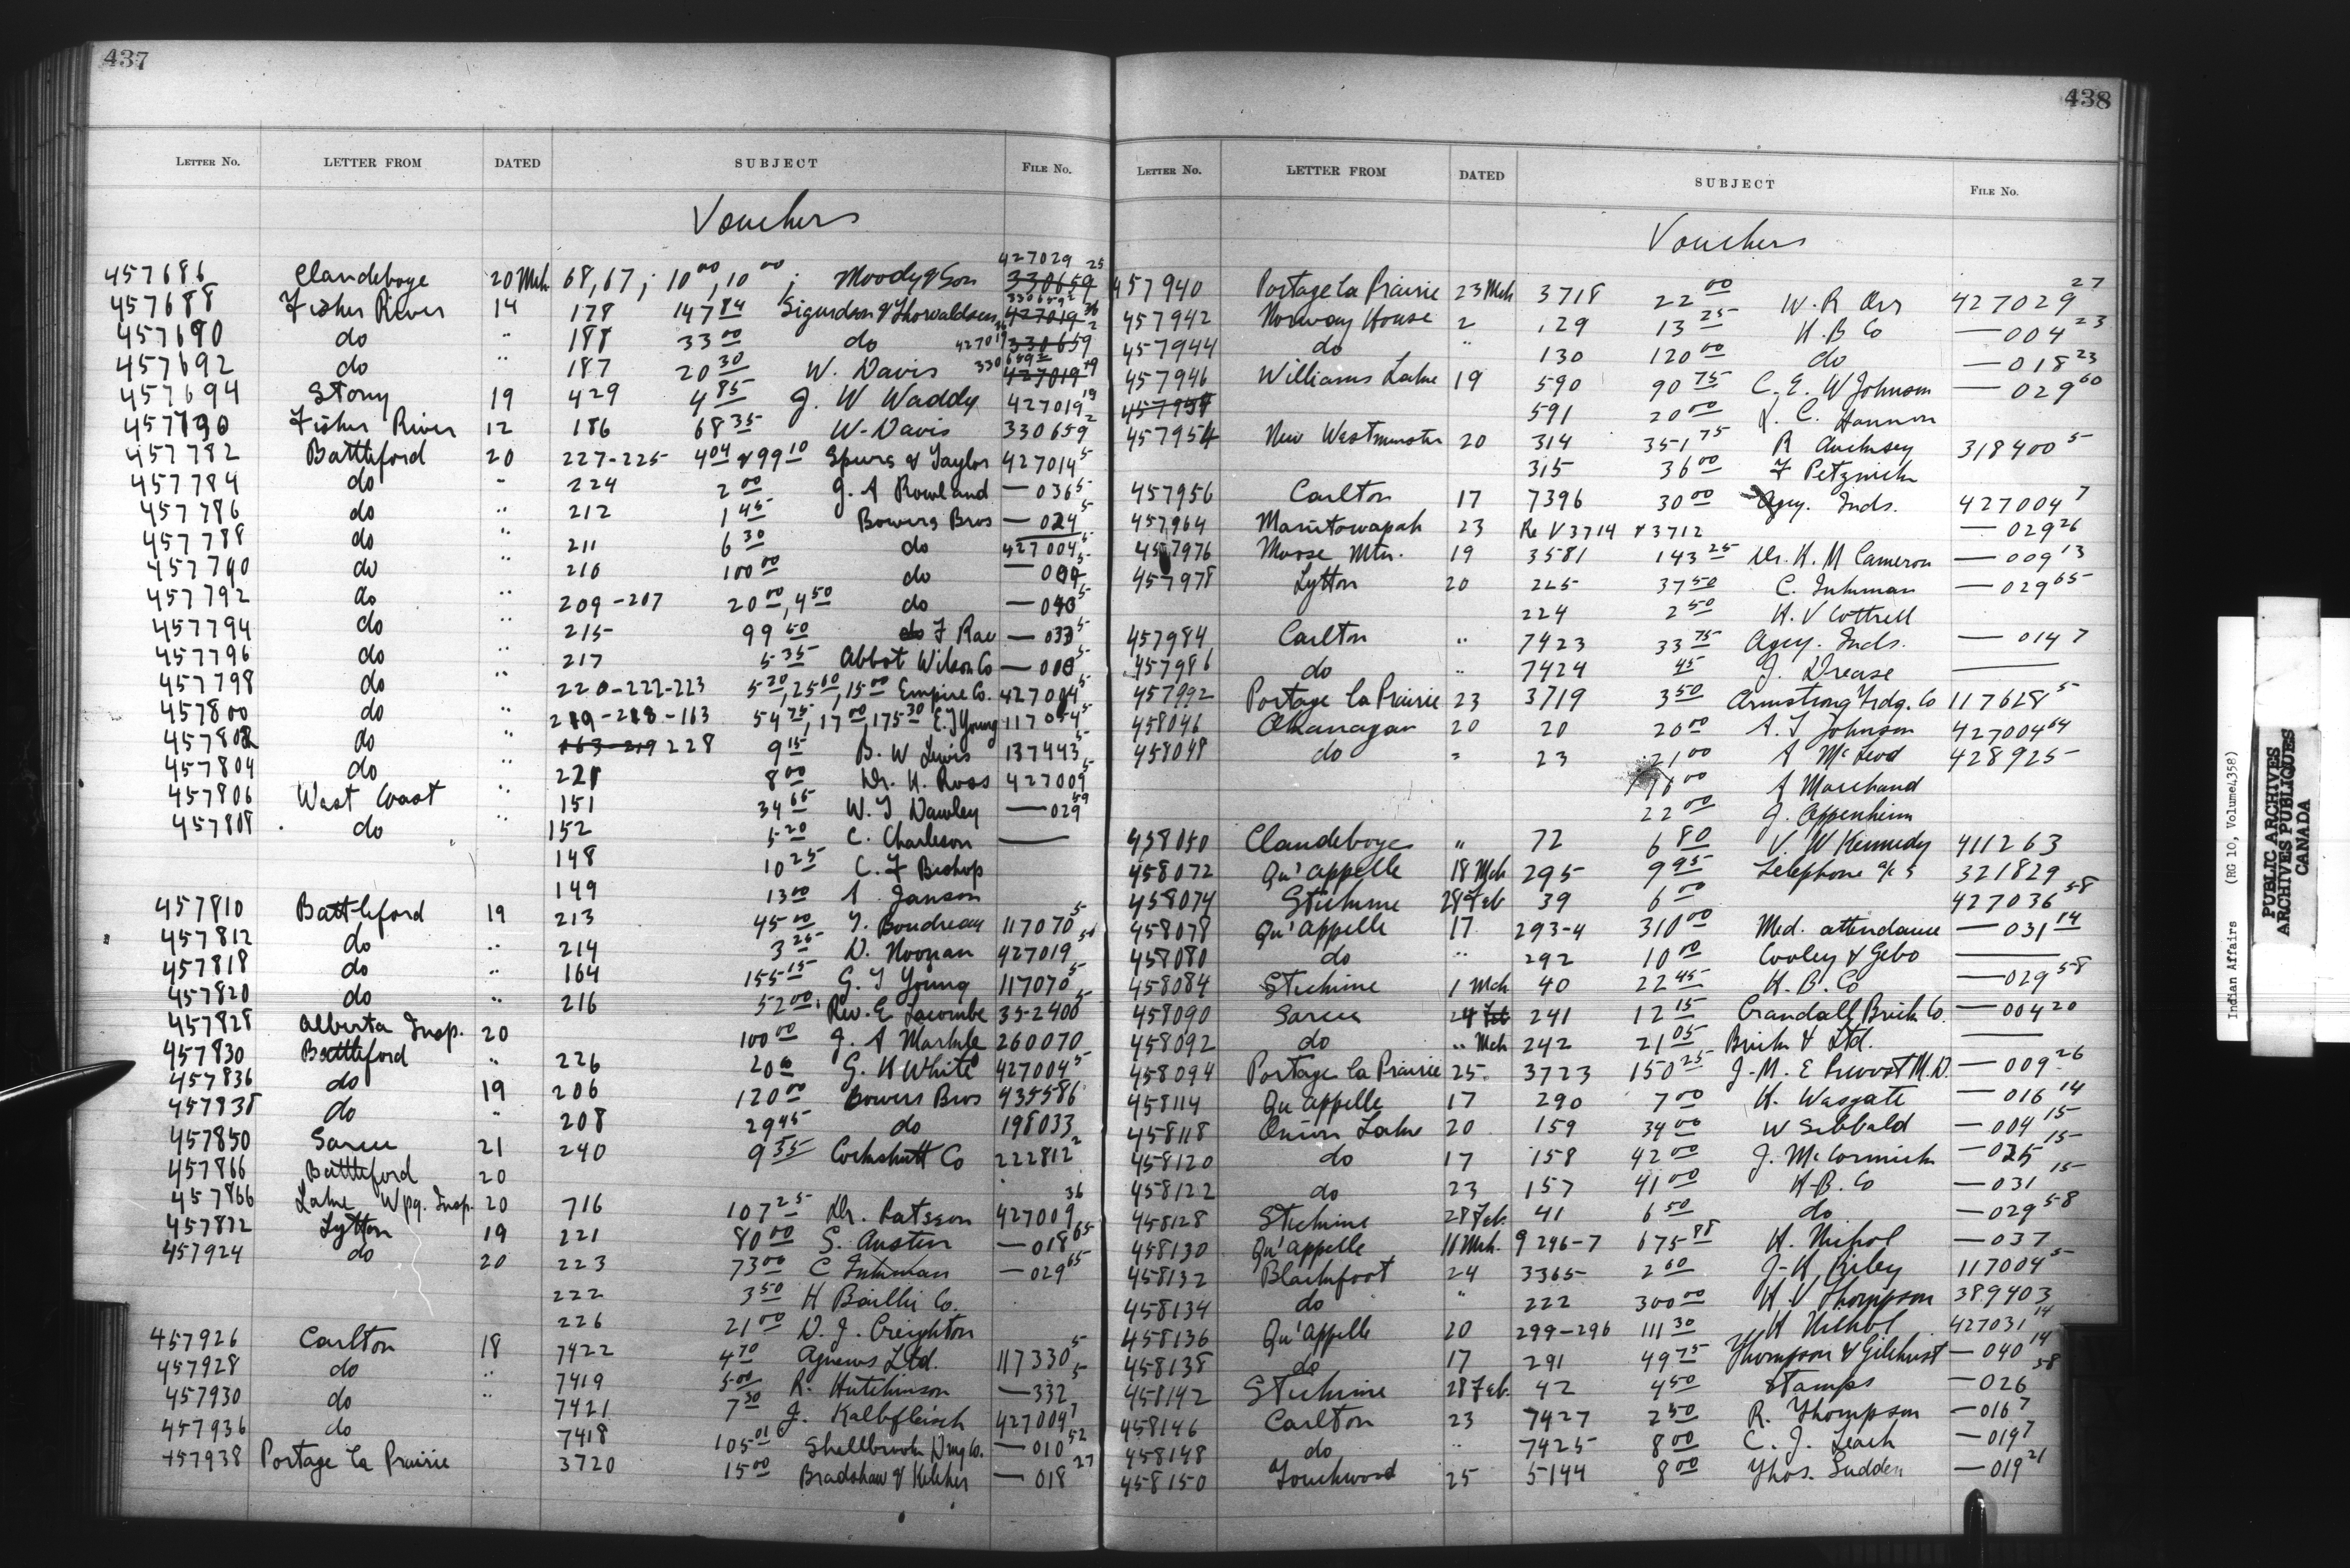 437
LETTER NO. LETTER FROM DATED SUBJECT FILE NO.
Vouchers
457686 Clandeboye 20 Mch 68, 67; 10 00, 10 00; Moody & Son 427029 25 330659
457688 Fisher River 14 178 147 84 Sigurdson & Thorvaldson 330659 2 427019 36
457690 do " 188 33 00 do 427019 36 330659 2
457692 do " 187 20 30 W. Davis 330659 2 427019
457694 Stony 19 429 4 85 J. W Waddy 427019 19
457790 Fisher River 12 186 68 35 W. Davis 330659 2
457782 Battleford 20 227-225 4 04 & 99 10 Spurs & Taylor 427014 5
457784 do " 224 2 00 J. A Rowland — 036 5
457786 do " 212 1 45 Bowers Bros — 024 5
457788 do " 211 6 30 do 427004 5
457790 do " 210 100 00 do
457792 do " 209-207 20 00, 4 50 do
457794 do " 215 99 50 do F Rae — 033 5
457796 do " 217 5 35 Abbot Wilson Co
457798 do " 220-222-223 5 20, 25 60, 15 00 Empire Co. 427004 5
457800 do " 219-218-163 54 75, 17 00, 175 30 E. J Young
457802 do " 163-219 228 9 15 B. W Lewis 137443 5
457804 do " 221 8 00 Dr. K. Ross 427009 5
457806 West Coast " 151 34 65 W. T Dawley — 029 59
457808 do " 152 5 20 C. Charleson —
148 10 25 C. F Bishop
149 13 00 A Janson
457810 Battleford 19 213 45 00 T. Boudreau 117070 5
457812 do " 214 3 25 D. Noonan 427019
457818 do " 164 155 15 G. J Young 117070 5
457820 do " 216 52 00 Rev. E. Lacombe 352400 5
457828 Alberta Insp. 20 100 00 J. A Markle 260070
457830 Battleford " 226 G. K White 427004 5
457836 do 19 206 120 00 Bowers Bros 435586
457838 do " 208 29 45 do 198033
457850 Sarcee 21 240 9 35 Cockshutt Co 222812 2
457866 Battleford 20
457866 Lake Wpg. Insp. 20 716 107 25 Dr. 427009 36
457872 Lytton 19 221 80 00 S. Austin — 018 65
457924 do 20 223 73 00 C Inkman — 029 65
222 3 50 H Baillie Co.
226 21 00 D. J. Creighton
457926 Carlton 18 7422 4 70 Agnews Ltd. 117330 5
457928 do " 7419 5 00 R. Hutchinson — 332 5
457930 do " 7421 7 30 J. Kalbfleisch 427004 7
457936 do 7418 105 01 Shellbrook Drug Co. — 010 52
457938 Portage la Prairie 3720 15 00 Bradshaw & Kelcher — 018 27
438
LETTER NO. LETTER FROM DATED SUBJECT FILE NO.
Vouchers
457940 Portage la Prairie 23 Mch 3718 22 00 W. R Orr 427029 27
457942 Norway House 2 129 13 25 H. B Co — 004 23
457944 do " 130 120 00 do — 018 23
457946 Williams Lake 19 590 90 75 C. E. W Johnson — 029 60
591 20 00 C. Hannon
457954 New Westminster 20 314 351 75 R 318400 5
315 36 00 F
457956 Carlton 17 7396 30 00 Agcy. Inds. 427004 7
457964 Manitowapah 23 Re V 3714 & 3712 — 029 26
457976 Moose Mtn. 19 3581 143 25 Dr. H. M Cameron — 009 13
457978 Lytton 20 225 37 50 C. Inkman — 029 65
224 2 50 H. V Cottrell
457984 Carlton " 7423 33 75 Agcy. Inds. — 014 7
457986 do " 7424 45 J. Drease —
457992 Portage la Prairie 23 3719 3 50 Armstrong Trdg. Co 117628 5
458046 Okanagan 20 20 20 00 A. T Johnson 427004 64
458048 do " 23 21 00 A McLeod 428925
16 00 A Marchand
22 00 J. Appenheim
458050 Clandeboye " 72 6 80 V. W Kennedy 411263
458072 Qu'appelle 18 Mch 295 9 95 Telephone a/c s 321829
458074 Stickine 28 Feb 39 6 00 427036 58
458078 Qu'appelle 17 293-4 310 00 Med. attendance — 031 14
458080 do " 292 10 00 Cooley & Gebo —
458084 Stickine 1 Mch 40 22 45 H. B. Co — 029 58
458090 Sarcee 24 Feb 241 12 15 Crandall Brick Co. — 004 20
458092 do " Mch 242 21 05 Birks & Ltd. —
458094 Portage la Prairie 25 3723 150 25 J. M. E Prevost M.D. — 009 26
458114 Qu'appelle 17 290 7 00 H. Wasgate — 016 14
458118 Onion Lake 20 159 34 00 W Sibbald — 004 15
458120 do 17 158 42 00 J. McCormick — 025 15
458122 do 23 157 41 00 H. B. Co — 031 15
458128 Stickine 28 Feb. 41 6 50 do — 029 58
458130 Qu'appelle 16 Mch. 9 296-7 675 88 H. Nichol — 037
458132 Blackfoot 24 3365 2 60 J. H Riley 117004 5
458134 do " 222 300 00 H. V Thompson 389403
458136 Qu'appelle 20 299-296 111 30 H Nichol 427031 14
458138 do 17 291 49 75 Thompson & Gilchrist — 040 14
458142 Stickine 28 Feb. 42 4 50 Stamps — 026 58
458146 Carlton 23 7427 2 50 R. Thompson — 016 7
458148 do " 7425 8 00 C. J. Leach — 019 7
458150 Touchwood 25 5144 8 00 Thos. Sudden — 019 21
Indian Affairs (RG 10, Volume 4358)
PUBLIC ARCHIVES
ARCHIVES PUBLIQUES
CANADA